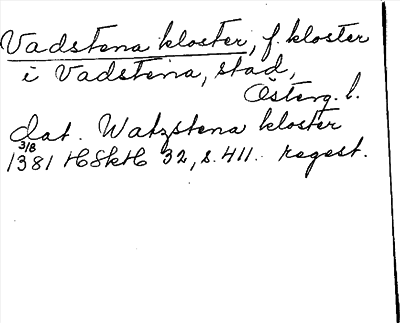 Vadstena kloster, f. kloster
i Vadstena, stad,
Österg. l.
dat. Watzstena kloster
3/8
1381 HSkH 32, s. 411. regest.